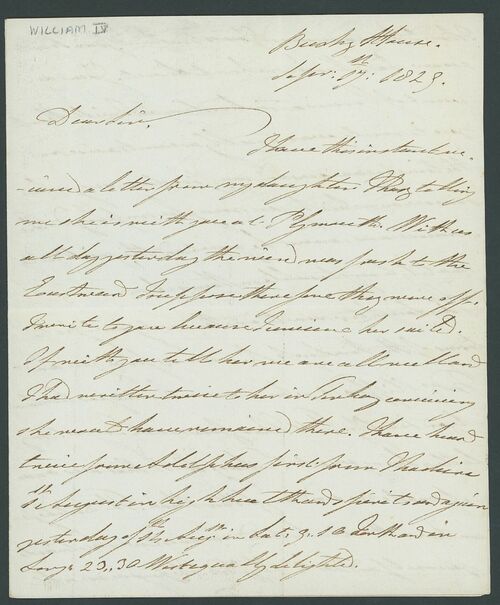 WILLIAM IV
Bushy House.
Sepr: 17th: 1823.
Dear Sir,
I have this instant rec-
-eived a letter from my daughter telling
me she is with you at Plymouth. With us
all day yesterday the wind was fresh to the
Eastward I suppose therefore they were off.
I write to you because I conceive her sailed.
If with you tell her we are all well and
I had written twice to her in Torbay conceiving
she would have remained there. I have heard
twice from Adolphus first from Madeira
1st August in high health and spirits and again
yesterday of the 6th in Lat: 3: 10 North and in
Long: 23, 30 West equally delighted.